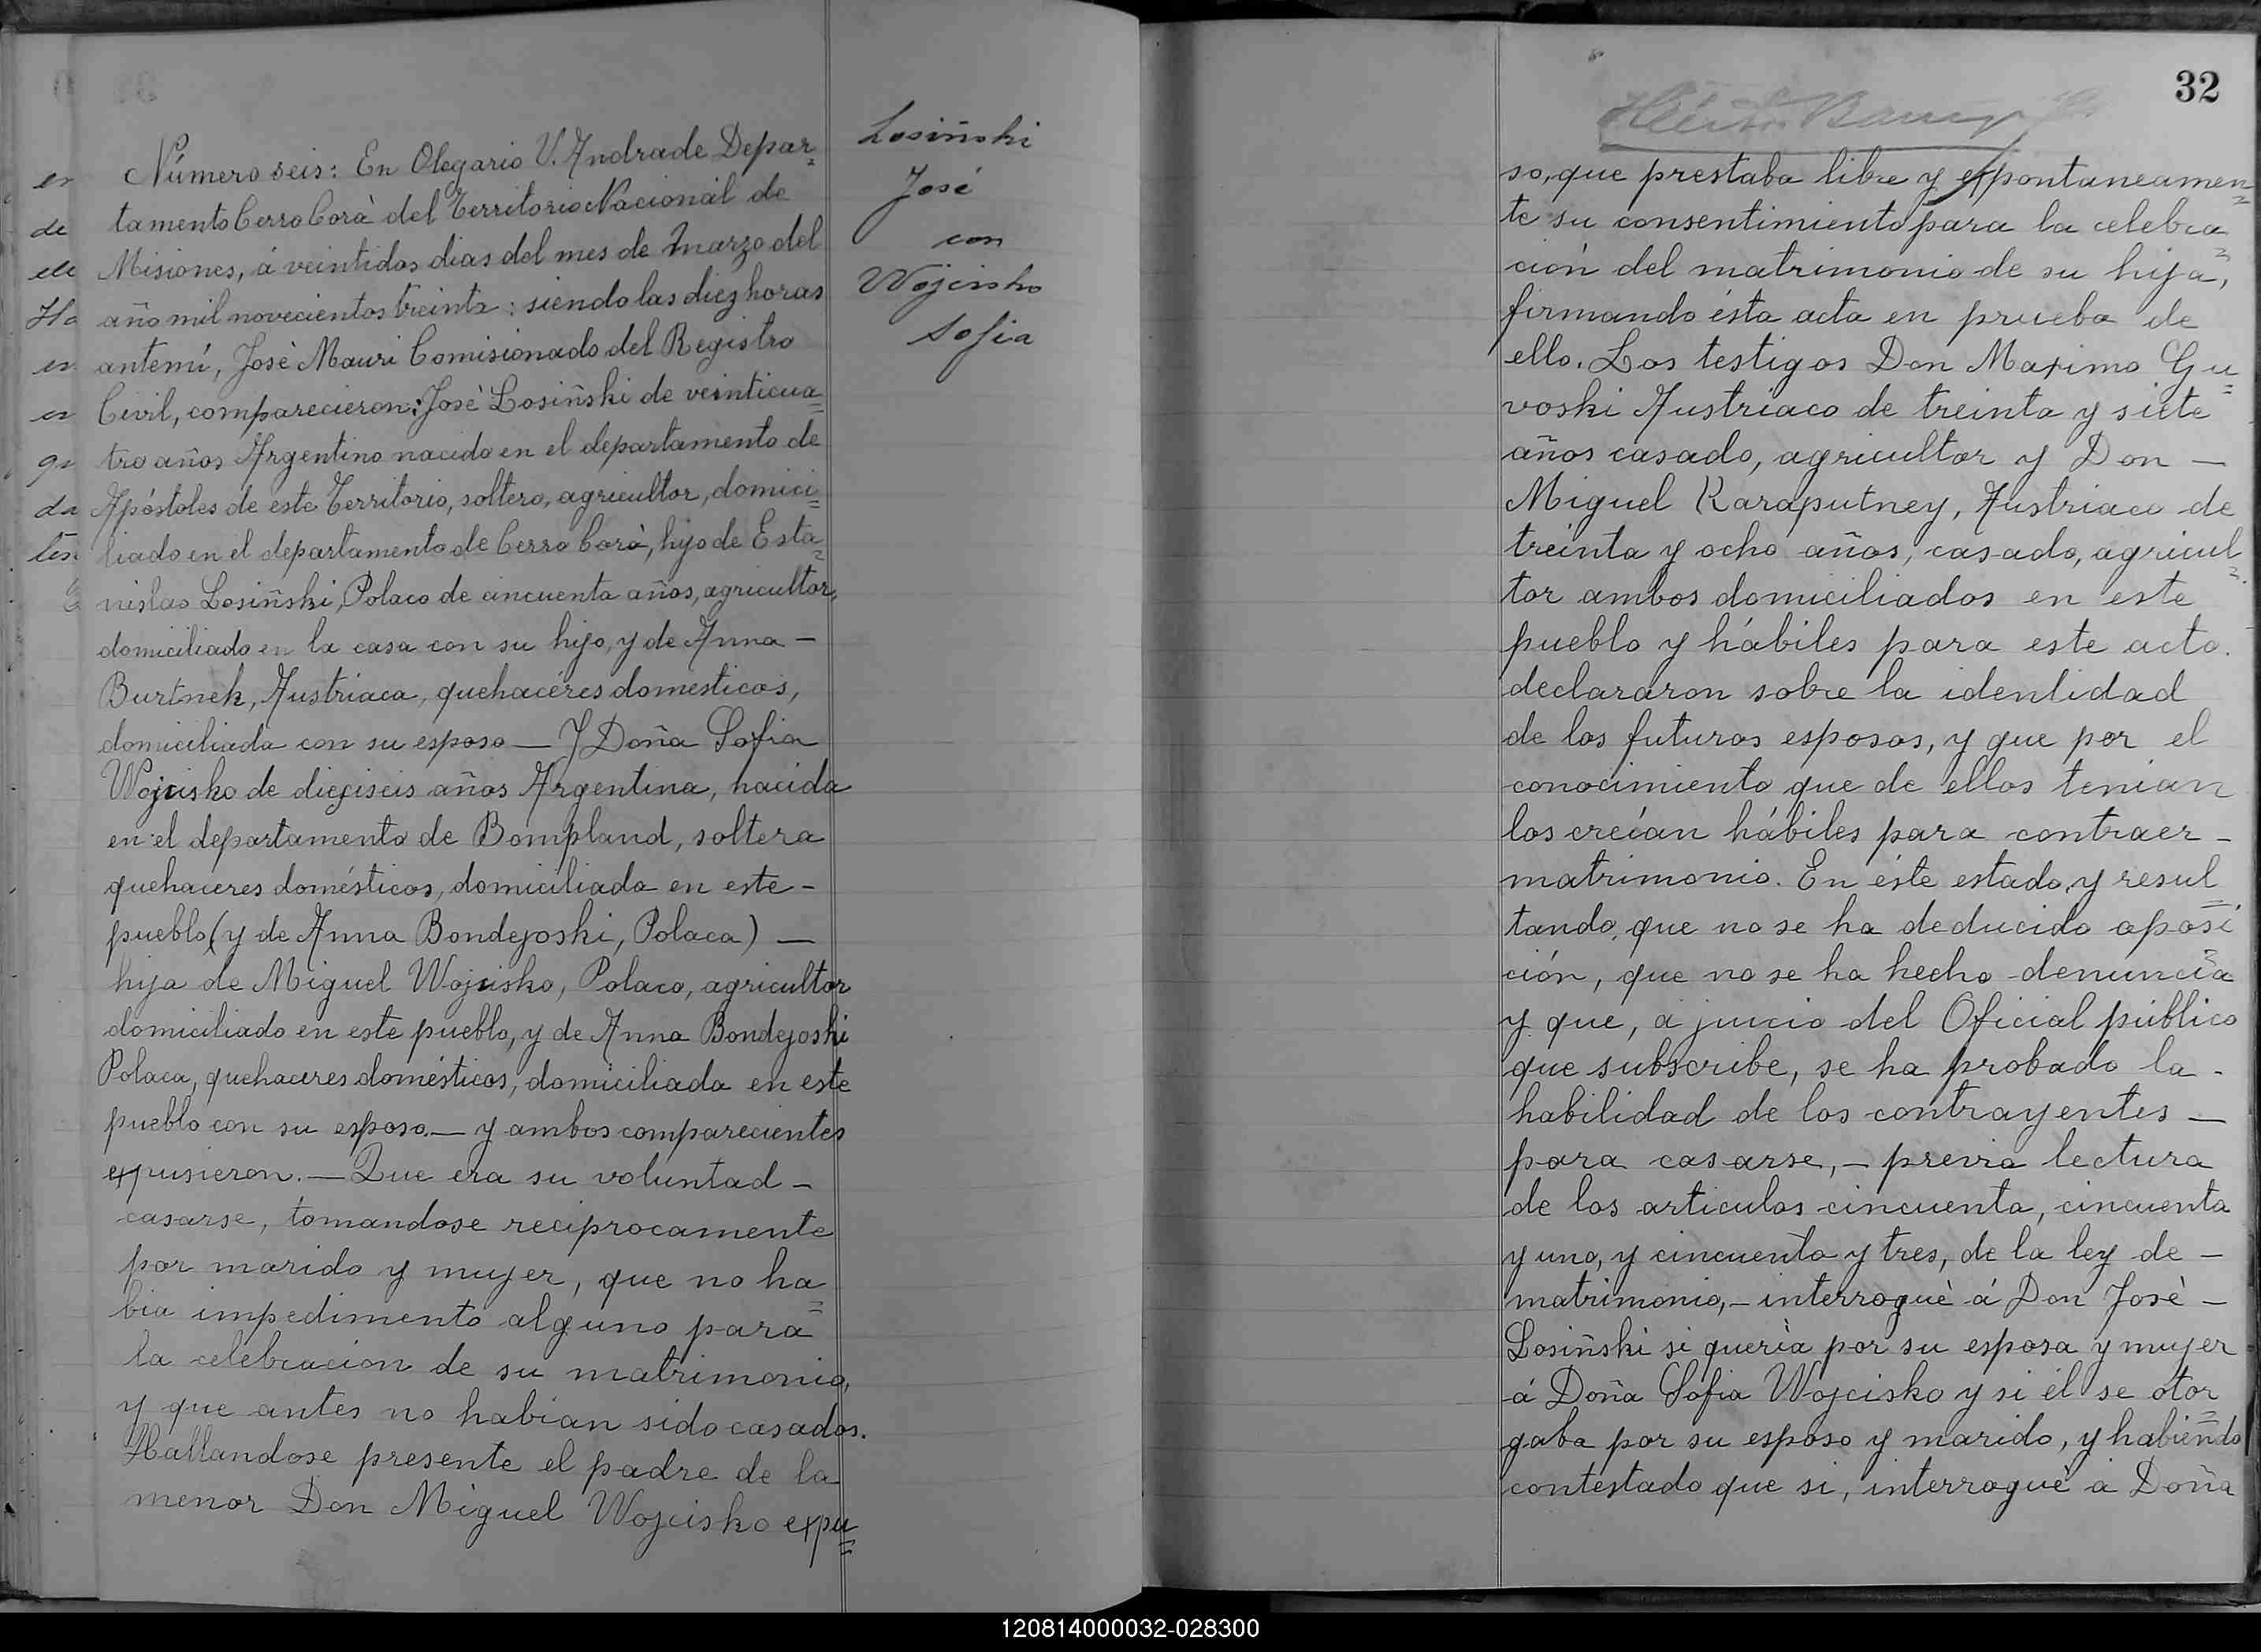 Número seis: En Olegario V. Andrade Depar=
tamento Cerro Corà del Territorio Nacional de
Misiones, á veintidos dias del mes de Marzo del
año mil novecientos treinta: siendo las diez horas
antemí, Josè Mauri Comisionado del Registro
Civil, comparecieron: Josè Losiñski de veinticua=
tro años Argentino nacido en el departamento de
Apóstoles de este Territorio, soltero, agricultor, domici=
liado en el departamento de Cerro Corà, hijo de Esta=
nislao Losiñski, Polaco de cincuenta años, agricultor,
domiciliado en la casa con su hijo, y de Anna —
Burtnek, Austriaca, quehacéres domesticos,
domiciliada con su esposo — Y Doña Sofia
Wojcisko de dieziseis años Argentina, nacida
en el departamento de Bompland, soltera
quehaceres domésticos, domiciliada en este -
pueblo (y de Anna Bondejoski, Polaca) —
hija de Miguel Wojcisko, Polaco, agricultor
domiciliado en este pueblo, y de Anna Bondejoski
Polaca, quehaceres domésticos, domiciliada en este
pueblo con su esposo. — y ambos comparecientes
expusieron. — Que era su voluntad -
casarse, tomandose reciprocamente
por marido y mujer, que no ha=
bia impedimento alguno para
la celebracion de su matrimonio,
y que antes no habian sido casados.
Hallandose presente el padre de la
menor Don Miguel Wojcisko expu=
Losiñski
José
con
Wojcisko
Sofia
er
de
Ha
en
er
qu
da
32
so, que prestaba libre y espontaneamen=
te su consentimiento para la celebra=
ción del matrimonio de su hija,
firmando ésta acta en prueba de
ello. Los testigos Don Maximo Gu=
voski Austriaco de treinta y siete
años casado, agricultor y Don —
Miguel Karaputney, Austriaco de
treinta y ocho años, casado, agricul=
tor ambos domiciliados en este
pueblo y hábiles para este acto.
declararon sobre la identidad
de los futuros esposos, y que por el
conocimiento que de ellos tenian
los creían hábiles para contraer -
matrimonio. En éste estado, y resul=
tando, que no se ha deducido oposi=
ción, que no se ha hecho denuncia
y que, á juicio del Oficial público
que subscribe, se ha probado la -
habilidad de los contrayentes —
para casarse, - previa lectura
de los articulos cincuenta, cincuenta
y uno, y cincuenta y tres, de la ley de -
matrimonio, - interroguè á Don Josè -
Losiñski si querìa por su esposa y mujer
á Doña Sofia Wojcisko y si èl se otor=
gaba por su esposo y marido, y habiendo
contestado que si, interroguè á Doña
120814000032-028300